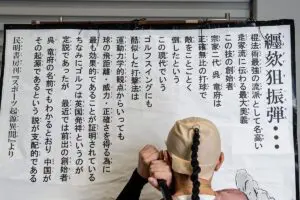 纏欬狙振弾…
棍法術最強の流派として名高い
走家流に伝わる最大奥義
この技の創始者
宗家二代 呉 竜府は
正確無比の打球で
敵をことごとく
倒したという
この現代でいう
ゴルフスイングにも
酷似した打撃法は
運動力学的観点からいっても
球の飛距離・威力・正確さを得る為に
最も効果的であることが証明されている
ちなみにゴルフは英国発祥というのが
定説であったが 最近では前出の創始者
呉 竜府の名前でもわかるとおり 中国が
その起源であるという説が支配的である
民明書房刊「スポーツ起源異聞」より